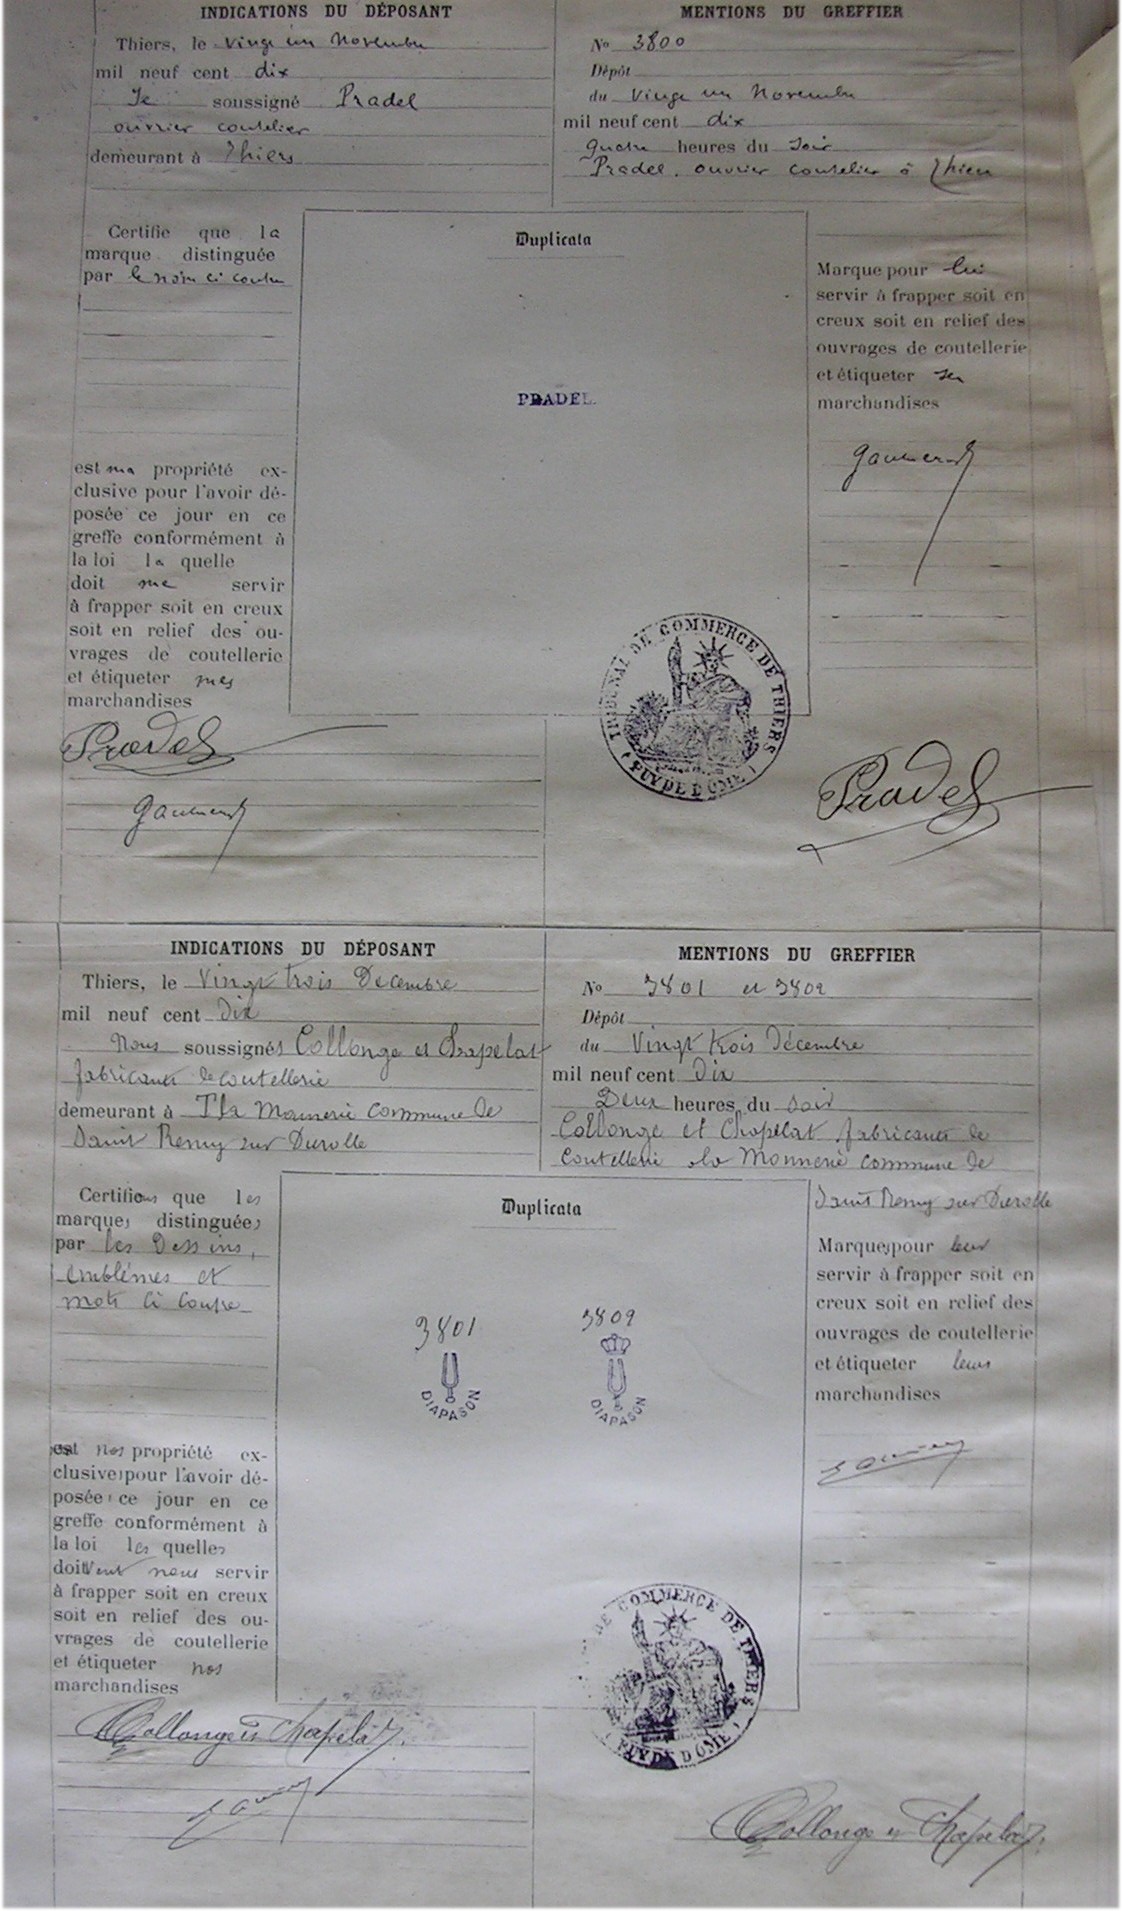 INDICATIONS DU DÉPOSANT
Thiers, le vingt un Novembre
mil neuf cent dix
Je soussigné Pradel
ouvrier coutelier
demeurant à Thiers
MENTIONS DU GREFFIER
No 3800
Dépôt
du vingt un Novembre
mil neuf cent dix
quatre heures du soir
Pradel, ouvrier coutelier à Thiers
Certifie que la
marque distinguée
par le nom ci contre
est ma propriété ex-
clusive pour l'avoir dé-
posée ce jour en ce
greffe conformément à
la loi la quelle
doit me servir
à frapper soit en creux
soit en relief des ou-
vrages de coutellerie
et étiqueter mes
marchandises
Pradel
Duplicata
PRADEL
TRIBUNAL DE COMMERCE DE THIERS
(PUY DE DOME)
Marque pour lui
servir à frapper soit en
creux soit en relief des
ouvrages de coutellerie
et étiqueter ses
marchandises
Pradel
INDICATIONS DU DÉPOSANT
Thiers, le Vingt trois Decembre
mil neuf cent Dix
Nous soussignés Collonge et Chapelat
fabricants de coutellerie
demeurant à la Monnerie commune de
Saint Remy sur Durolle
MENTIONS DU GREFFIER
No 3801 et 3802
Dépôt
du Vingt trois Décembre
mil neuf cent Dix
Deux heures du soir
Collonge et Chapelat fabricants de
coutellerie la Monnerie commune de
Saint Remy sur Durolle
Certifions que les
marques distinguées
par les Dessins,
emblèmes et
mots ci contre
est nos propriété ex-
clusives pour l'avoir dé-
posées ce jour en ce
greffe conformément à
la loi les quelles
doivent nous servir
à frapper soit en creux
soit en relief des ou-
vrages de coutellerie
et étiqueter nos
marchandises
Collonge et Chapelat
Duplicata
3801
DIAPASON
3802
DIAPASON
DE COMMERCE DE THIERS
(PUY DE DOME)
Marques pour leur
servir à frapper soit en
creux soit en relief des
ouvrages de coutellerie
et étiqueter leurs
marchandises
Collonge et Chapelat